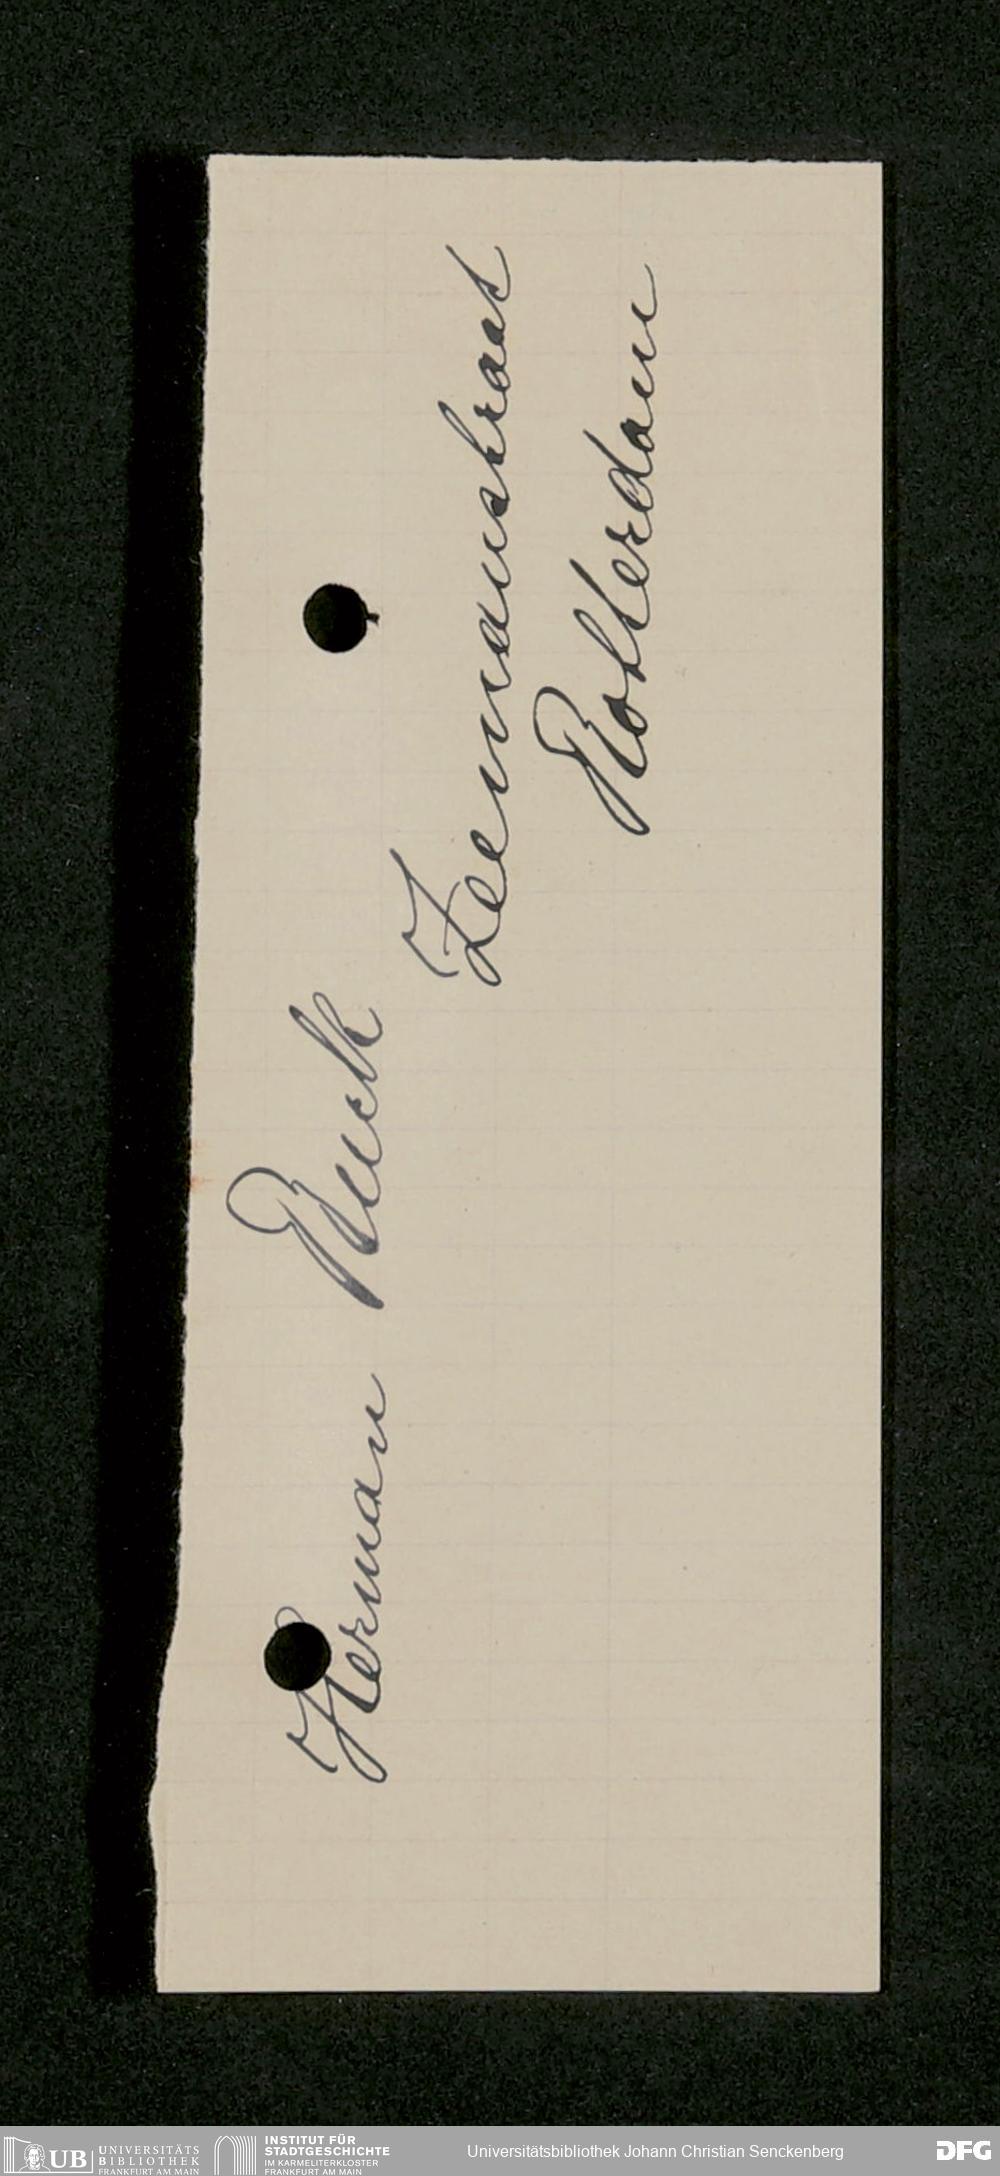 Herman Ruelk
Zeemanstraat
Rotterdam
UB UNIVERSITÄTS
BIBLIOTHEK
FRANKFURT AM MAIN
INSTITUT FÜR
STADTGESCHICHTE
IM KARMELITERKLOSTER
FRANKFURT AM MAIN
Universitätsbibliothek Johann Christian Senckenberg
DFG